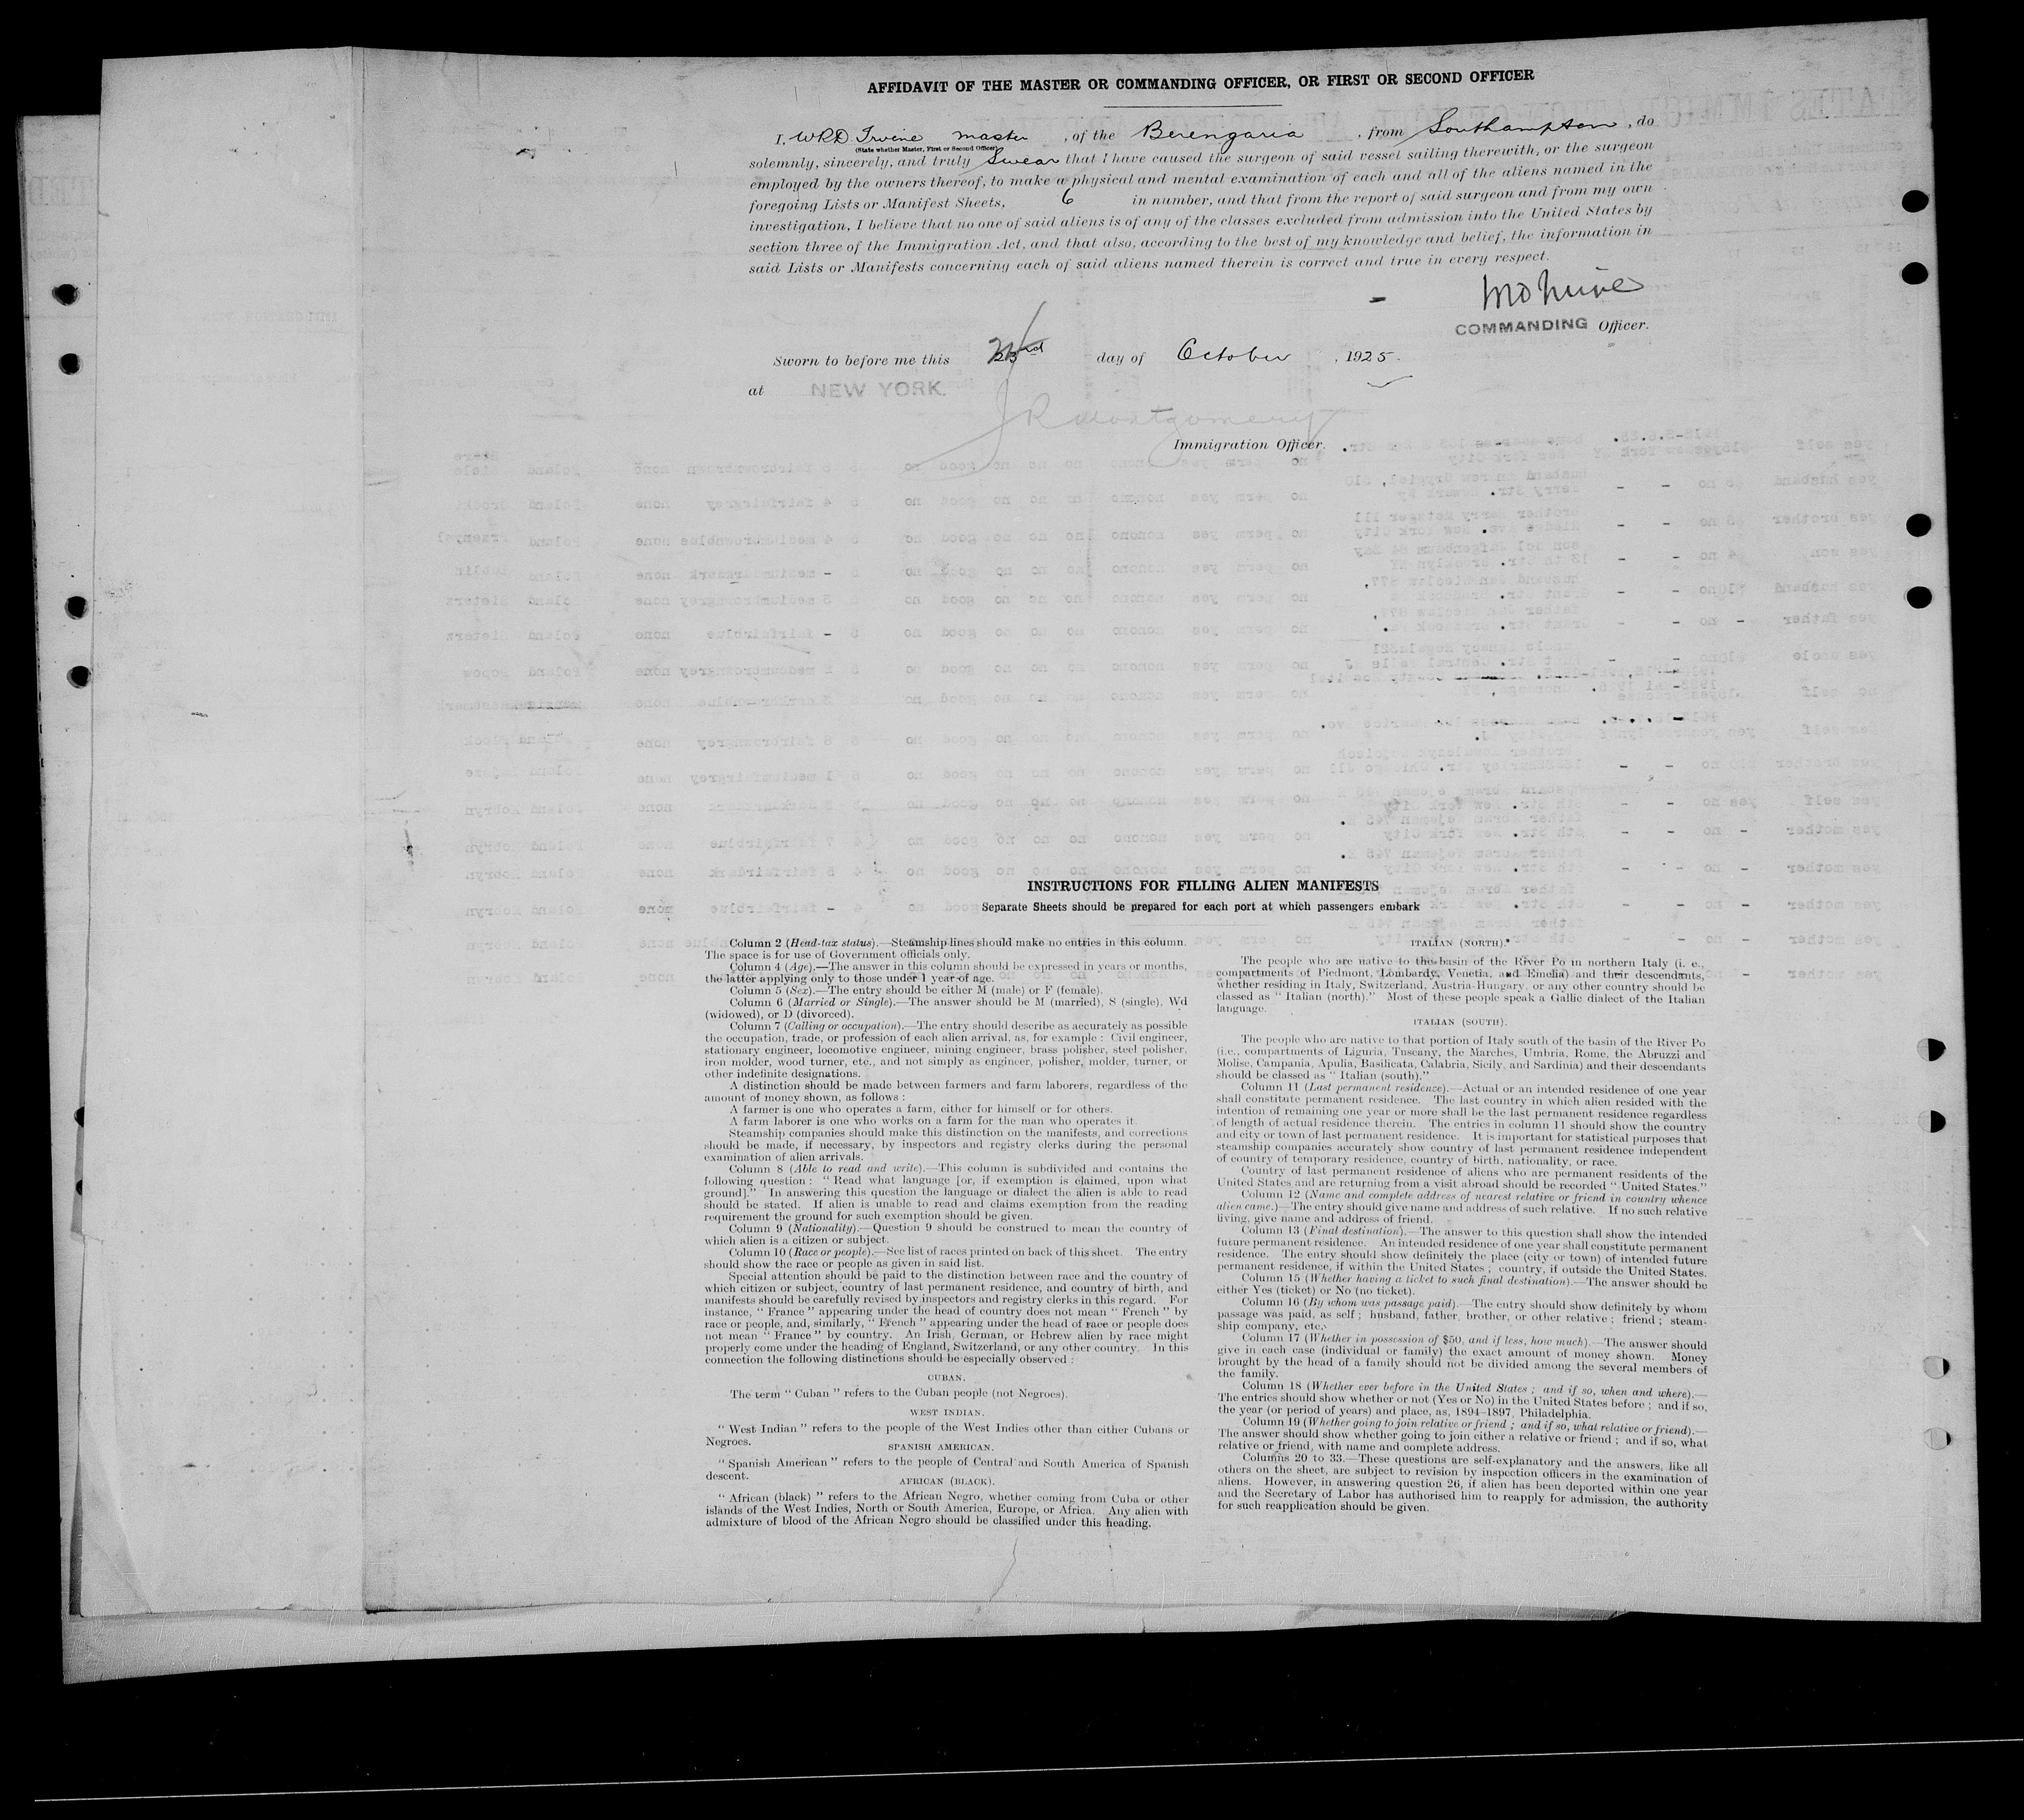 AFFIDAVIT OF THE MASTER OR COMMANDING OFFICER, OR FIRST OR SECOND OFFICER
I, WRD Irvine master, of the Berengaria, from Southampton, do
(State whether Master, First or Second Officer)
solemnly, sincerely, and truly Swear that I have caused the surgeon of said vessel sailing therewith, or the surgeon
employed by the owners thereof, to make a physical and mental examination of each and all of the aliens named in the
foregoing Lists or Manifest Sheets, 6 in number, and that from the report of said surgeon and from my own
investigation, I believe that no one of said aliens is of any of the classes excluded from admission into the United States by
section three of the Immigration Act, and that also, according to the best of my knowledge and belief, the information in
said Lists or Manifests concerning each of said aliens named therein is correct and true in every respect.
COMMANDING Officer.
Sworn to before me this day of October, 1925.
at NEW YORK.
J R Montgomery
Immigration Officer.
INSTRUCTIONS FOR FILLING ALIEN MANIFESTS
Separate Sheets should be prepared for each port at which passengers embark
Column 2 (Head-tax status).—Steamship lines should make no entries in this column.
The space is for use of Government officials only.
Column 4 (Age).—The answer in this column should be expressed in years or months,
the latter applying only to those under 1 year of age.
Column 5 (Sex).—The entry should be either M (male) or F (female).
Column 6 (Married or Single).—The answer should be M (married), S (single), Wd
(widowed), or D (divorced).
Column 7 (Calling or occupation).—The entry should describe as accurately as possible
the occupation, trade, or profession of each alien arrival, as, for example : Civil engineer,
stationary engineer, locomotive engineer, mining engineer, brass polisher, steel polisher,
iron molder, wood turner, etc., and not simply as engineer, polisher, molder, turner, or
other indefinite designations.
A distinction should be made between farmers and farm laborers, regardless of the
amount of money shown, as follows :
A farmer is one who operates a farm, either for himself or for others.
A farm laborer is one who works on a farm for the man who operates it.
Steamship companies should make this distinction on the manifests, and corrections
should be made, if necessary, by inspectors and registry clerks during the personal
examination of alien arrivals.
Column 8 (Able to read and write).—This column is subdivided and contains the
following question : " Read what language [or, if exemption is claimed, upon what
ground]." In answering this question the language or dialect the alien is able to read
should be stated. If alien is unable to read and claims exemption from the reading
requirement the ground for such exemption should be given.
Column 9 (Nationality).—Question 9 should be construed to mean the country of
which alien is a citizen or subject.
Column 10 (Race or people).—See list of races printed on back of this sheet. The entry
should show the race or people as given in said list.
Special attention should be paid to the distinction between race and the country of
which citizen or subject, country of last permanent residence, and country of birth, and
manifests should be carefully revised by inspectors and registry clerks in this regard. For
instance, " France " appearing under the head of country does not mean " French " by
race or people, and, similarly, " French " appearing under the head of race or people does
not mean " France " by country. An Irish, German, or Hebrew alien by race might
properly come under the heading of England, Switzerland, or any other country. In this
connection the following distinctions should be especially observed :
CUBAN.
The term " Cuban " refers to the Cuban people (not Negroes).
WEST INDIAN.
" West Indian " refers to the people of the West Indies other than either Cubans or
Negroes.
SPANISH AMERICAN.
" Spanish American " refers to the people of Central and South America of Spanish
descent.
AFRICAN (BLACK).
" African (black) " refers to the African Negro, whether coming from Cuba or other
islands of the West Indies, North or South America, Europe, or Africa. Any alien with
admixture of blood of the African Negro should be classified under this heading.
ITALIAN (NORTH).
The people who are native to the basin of the River Po in northern Italy (i. e.,
compartments of Piedmont, Lombardy, Venetia, and Emelia) and their descendants,
whether residing in Italy, Switzerland, Austria-Hungary, or any other country should be
classed as " Italian (north)." Most of these people speak a Gallic dialect of the Italian
language.
ITALIAN (SOUTH).
The people who are native to that portion of Italy south of the basin of the River Po
(i.e., compartments of Liguria, Tuscany, the Marches, Umbria, Rome, the Abruzzi and
Molise, Campania, Apulia, Basilicata, Calabria, Sicily, and Sardinia) and their descendants
should be classed as " Italian (south)."
Column 11 (Last permanent residence).—Actual or an intended residence of one year
shall constitute permanent residence. The last country in which alien resided with the
intention of remaining one year or more shall be the last permanent residence regardless
of length of actual residence therein. The entries in column 11 should show the country
and city or town of last permanent residence. It is important for statistical purposes that
steamship companies accurately show country of last permanent residence independent
of country of temporary residence, country of birth, nationality, or race.
Country of last permanent residence of aliens who are permanent residents of the
United States and are returning from a visit abroad should be recorded " United States."
Column 12 (Name and complete address of nearest relative or friend in country whence
alien came.)—The entry should give name and address of such relative. If no such relative
living, give name and address of friend.
Column 13 (Final destination).—The answer to this question shall show the intended
future permanent residence. An intended residence of one year shall constitute permanent
residence. The entry should show definitely the place (city or town) of intended future
permanent residence, if within the United States ; country, if outside the United States.
Column 15 (Whether having a ticket to such final destination).—The answer should be
either Yes (ticket) or No (no ticket).
Column 16 (By whom was passage paid).—The entry should show definitely by whom
passage was paid, as self ; husband, father, brother, or other relative ; friend ; steam-
ship company, etc.
Column 17 (Whether in possession of $50, and if less, how much).—The answer should
give in each case (individual or family) the exact amount of money shown. Money
brought by the head of a family should not be divided among the several members of
the family.
Column 18 (Whether ever before in the United States ; and if so, when and where).—
The entries should show whether or not (Yes or No) in the United States before ; and if so,
the year (or period of years) and place, as, 1894-1897, Philadelphia.
Column 19 (Whether going to join relative or friend ; and if so, what relative or friend).—
The answer should show whether going to join either a relative or friend ; and if so, what
relative or friend, with name and complete address.
Columns 20 to 33.—These questions are self-explanatory and the answers, like all
others on the sheet, are subject to revision by inspection officers in the examination of
aliens. However, in answering question 26, if alien has been deported within one year
and the Secretary of Labor has authorised him to reapply for admission, the authority
for such reapplication should be given.